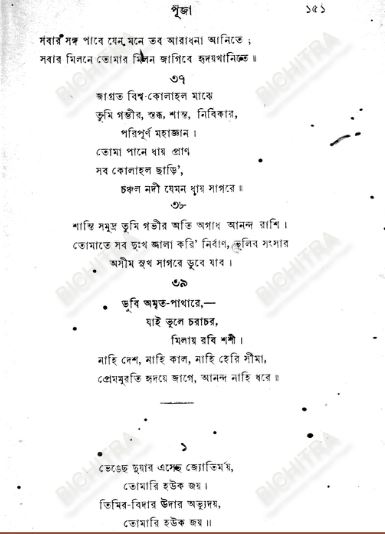 পূজা ১৫১
সবার সঙ্গ পাবে যেন মনে তব আরাধনা আনিতে ;
সবার মিলনে তোমার মিলন জাগিবে হৃদয়খানিতে ॥
৩৭
জাগ্রত বিশ্ব-কোলাহল মাঝে
তুমি গম্ভীর, স্তব্ধ, শান্ত, নির্বিকার,
পরিপূর্ণ মহাজ্ঞান ।
তোমা পানে ধায় প্রাণ
সব কোলাহল ছাড়ি',
চঞ্চল নদী যেমন ধায় সাগরে ॥
৩৮
শান্তি সমুদ্র তুমি গভীর অতি অগাধ আনন্দ রাশি ।
তোমাতে সব দুঃখ জ্বালা করি' নির্বাণ, ভুলিব সংসার
অসীম সুখ সাগরে ডুবে যাব ।
৩৯
ডুবি অমৃত-পাথারে,—
যাই ভুলে চরাচর,
মিলায় রবি শশী ।
নাহি দেশ, নাহি কাল, নাহি হেরি সীমা,
প্রেমমূরতি হৃদয়ে জাগে, আনন্দ নাহি ধরে ॥
১
ভেঙেছ দুয়ার এসেছ জ্যোতির্ময়,
তোমারি হউক জয় ।
তিমির-বিদার উদার অভ্যুদয়,
তোমারি হউক জয় ॥
BICHITRA
BICHITRA
BICHITRA
BICHITRA
BICHITRA
BICHITRA
BICHITRA
BICHITRA